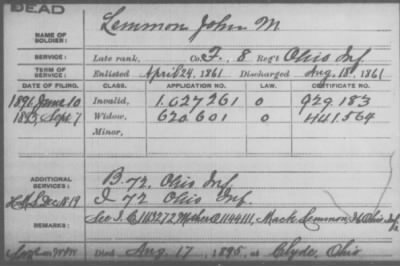 DEAD
NAME OF SOLDIER: Lemmon John M
SERVICE: Late rank, Co. F, 8 Reg't Ohio Inf
TERM OF SERVICE: Enlisted April 24, 1861 Discharged Aug. 18, 1861
DATE OF FILING. CLASS. APPLICATION NO. LAW. CERTIFICATE NO.
1891, June 10 Invalid, 1.027.261 O 929.183
1895, Sept 7 Widow, 620.601 O 441.564
Minor,
ADDITIONAL SERVICES: B. 72. Ohio Inf
I 72 Ohio Inf.
REMARKS: Mack Lemmon, Ohio
Died Aug. 17, 1895, at Clyde, Ohio